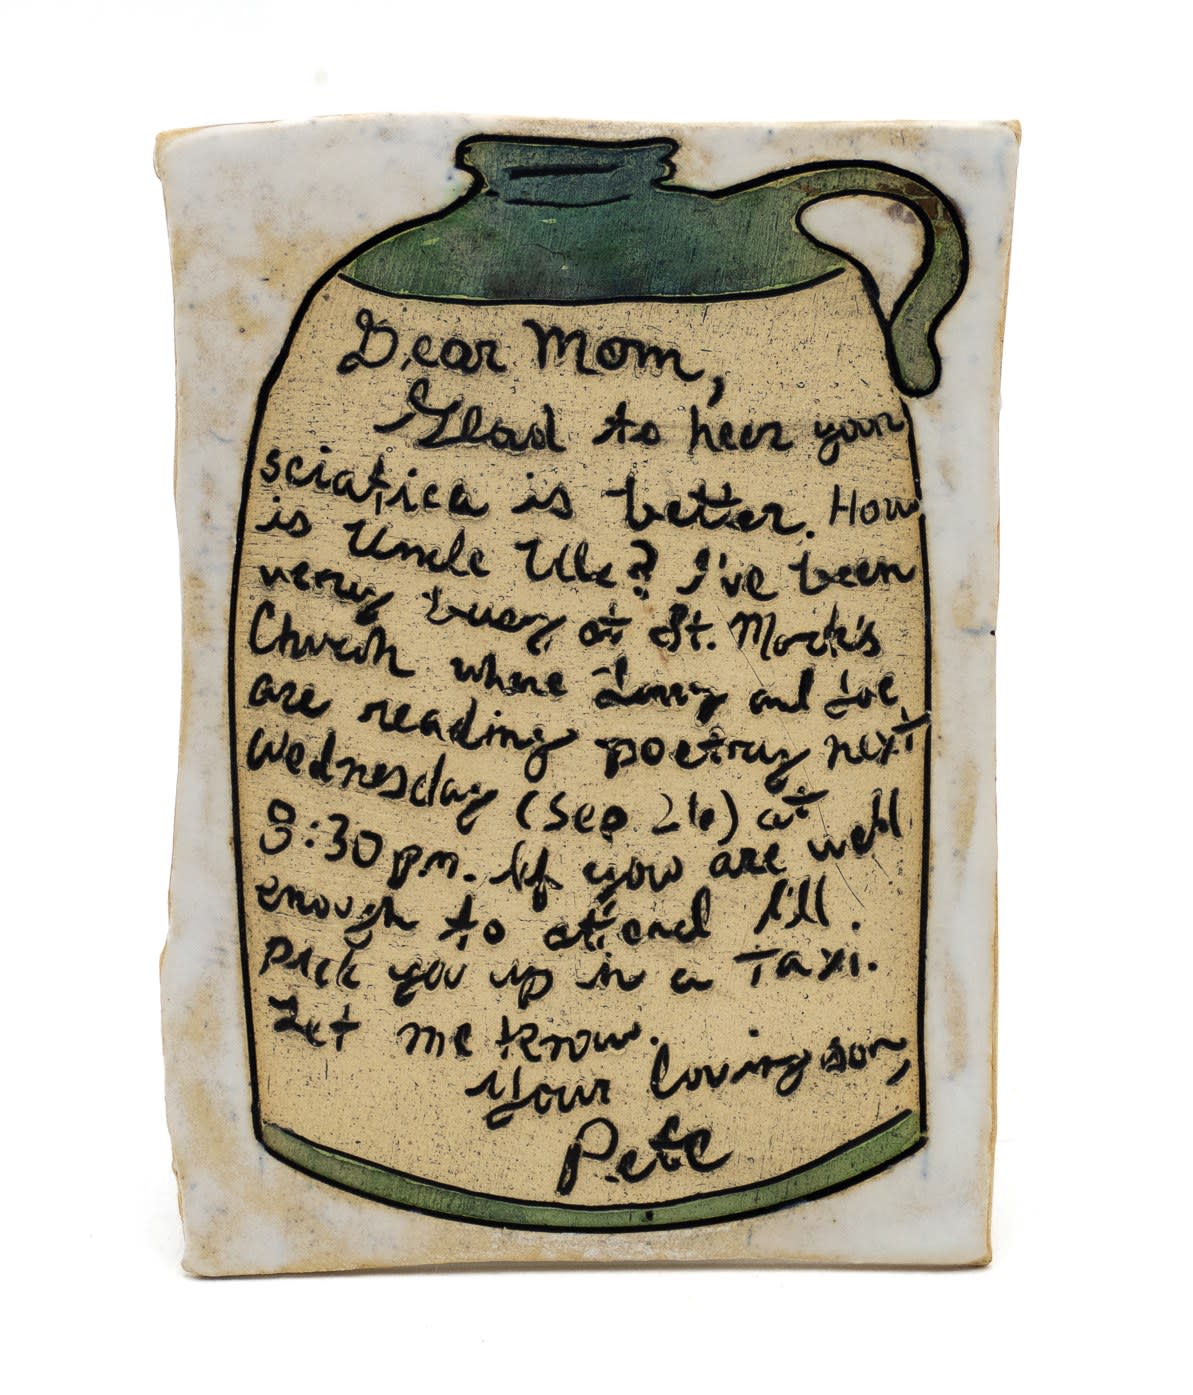 Dear Mom,
Glad to hear your
sciatica is better. How
is Uncle I've been
very busy at St. Mark's
Church where Larry and Joe
are reading poetry next
Wednesday (Sep. 26) at
8:30 pm. If you are well
enough to attend I'll
pick you up in a taxi.
Let me know.
Your loving son,
Pete